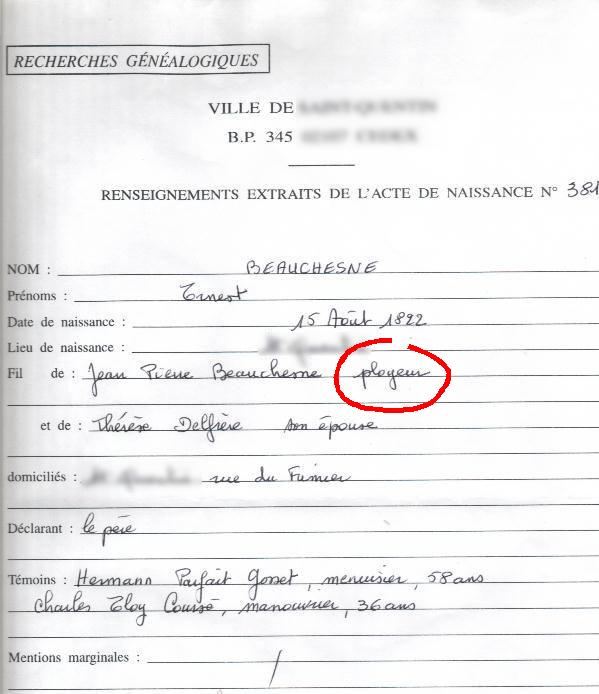 RECHERCHES GÉNÉALOGIQUES
VILLE DE
B.P. 345
RENSEIGNEMENTS EXTRAITS DE L'ACTE DE NAISSANCE N° 381
NOM : BEAUCHESNE
Prénoms : Ernest
Date de naissance : 15 Août 1822
Lieu de naissance :
Fil de : Jean Pierre Beauchesne ployeur
et de : Thérèse Delfrère son épouse
domiciliés : rue du Fumier
Déclarant : le père
Témoins : Hermann Parfait Gosset, menuisier, 58 ans
Charles Eloy Coursé, manouvrier, 36 ans
Mentions marginales : /